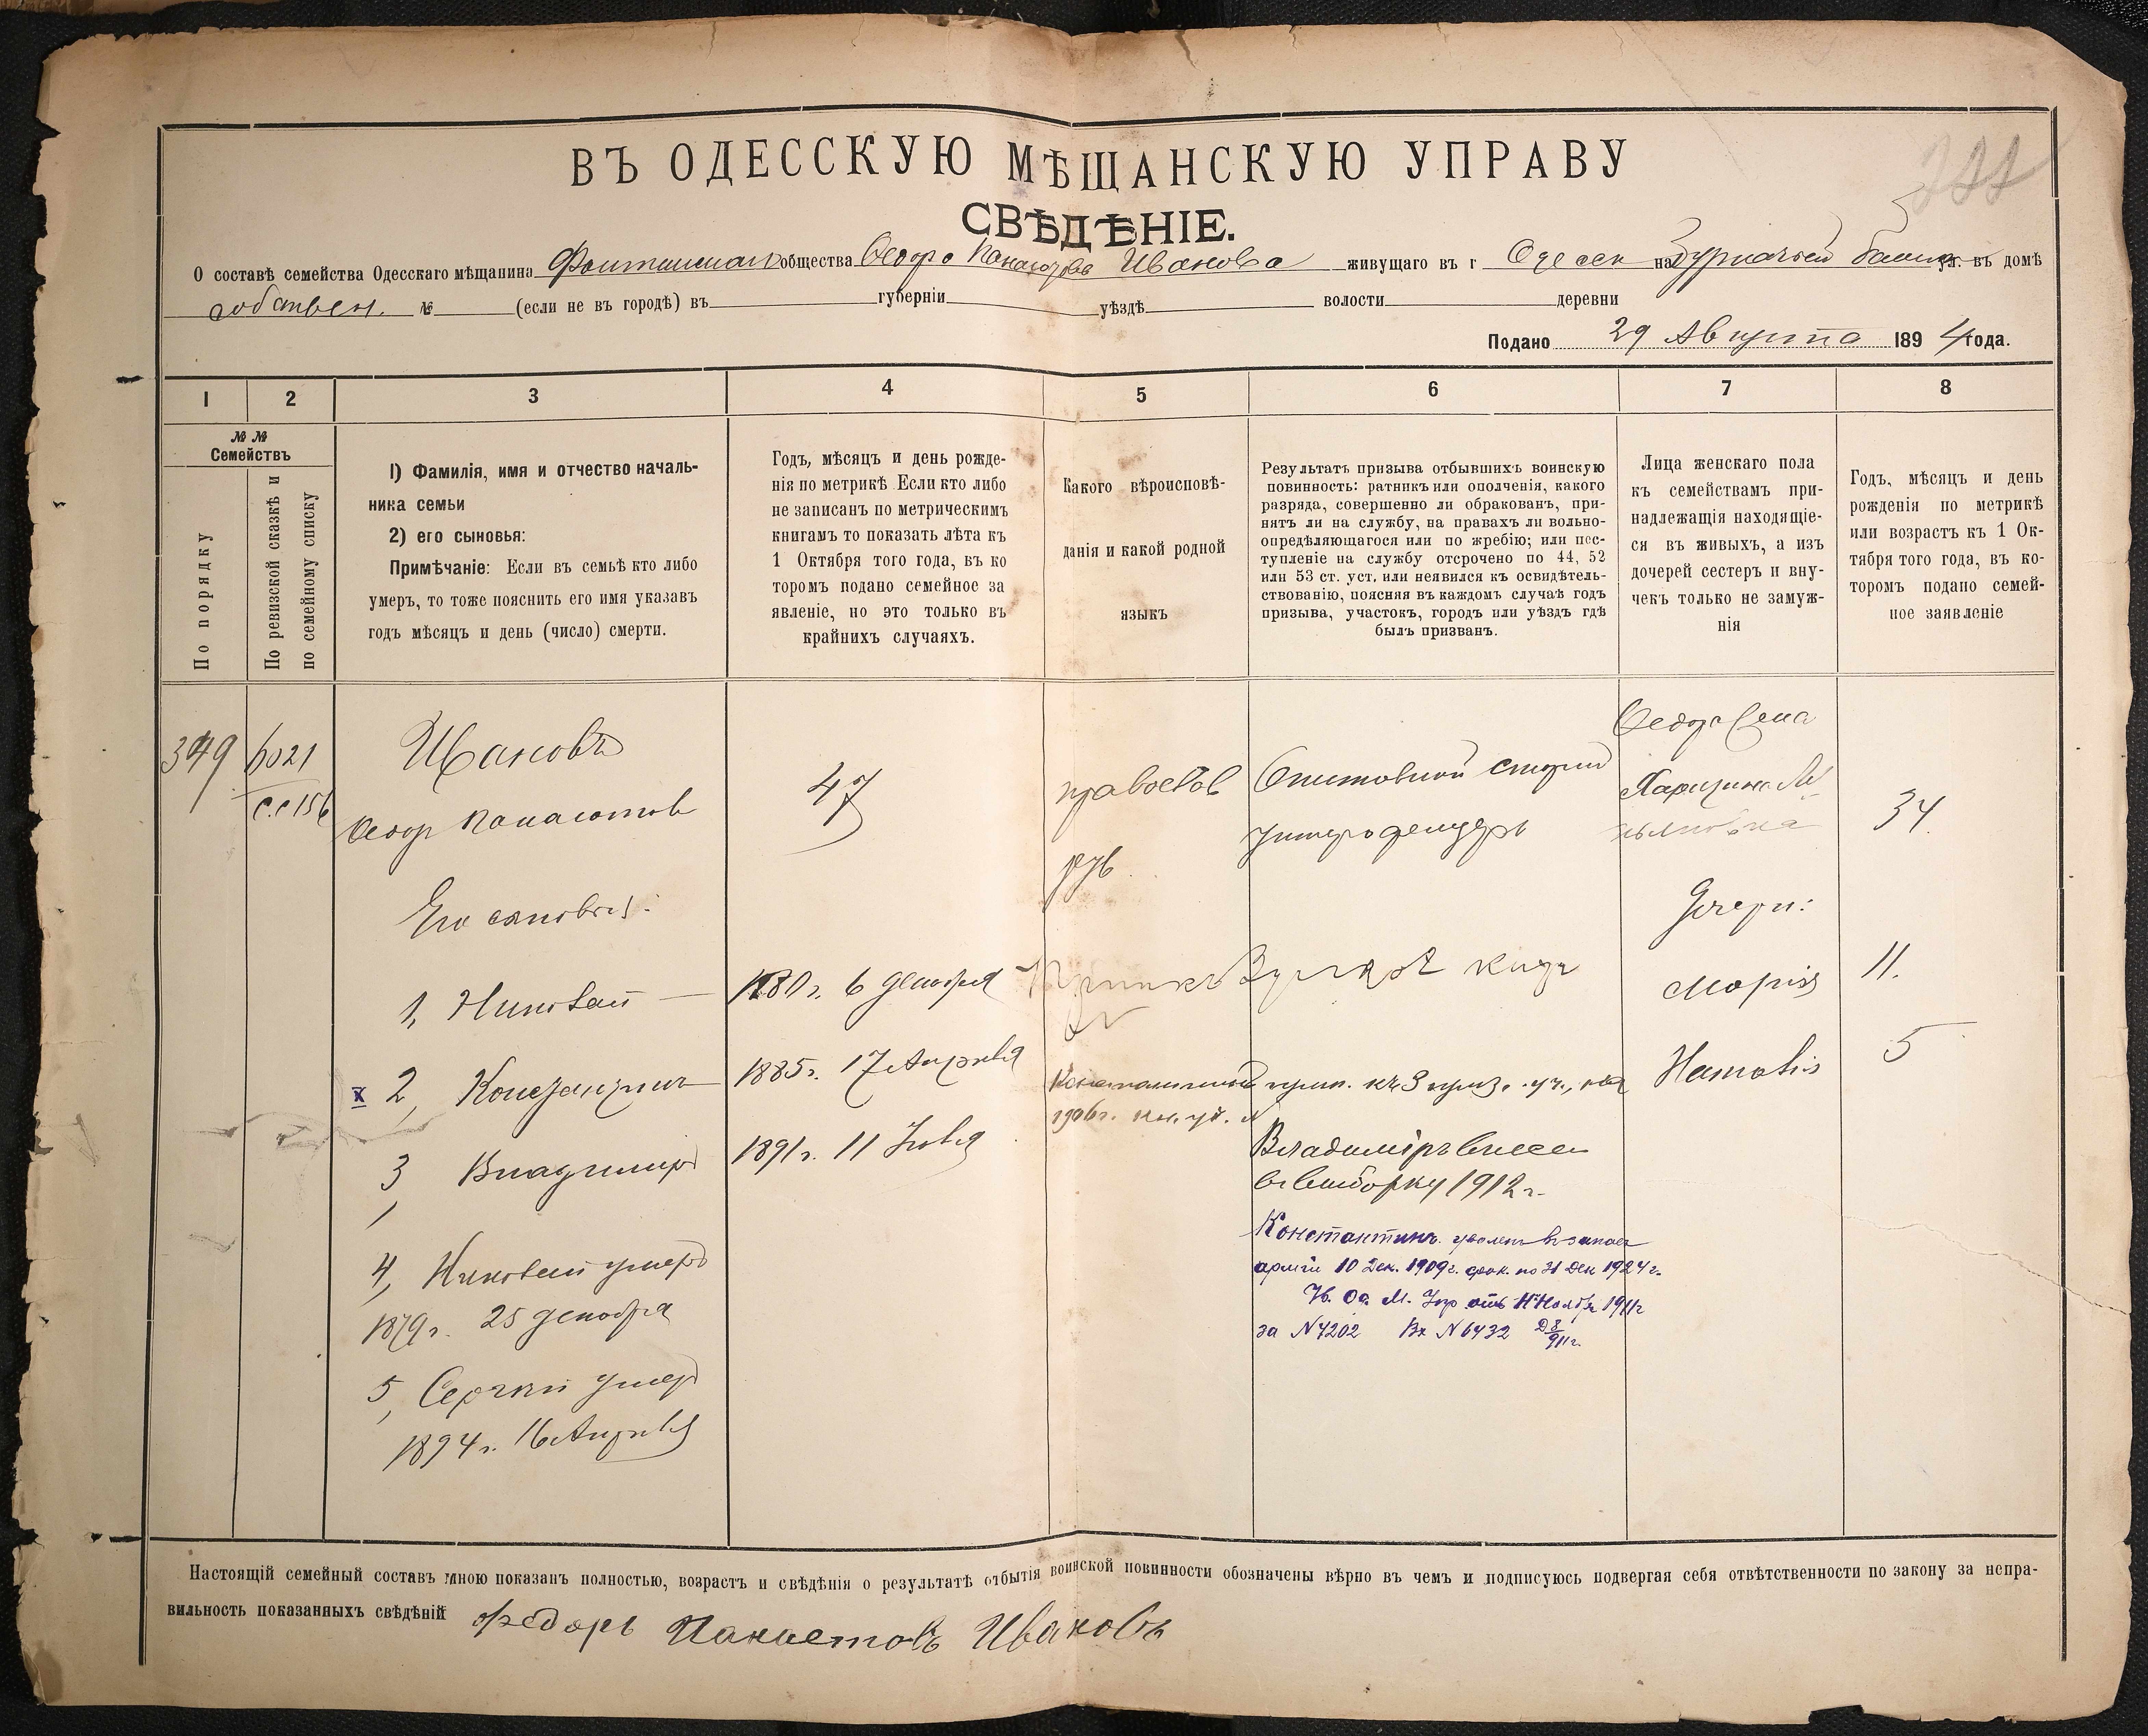 ВЪ ОДЕССКУЮ МѢЩАНСКУЮ УПРАВУ
СВѢДѢНІЕ.
О составѣ семейства Одесскаго мѣщанина общества Ѳеодора Иванова живущаго въ г Одессе на въ домѣ
собствен. № (если не въ городѣ) въ губерніи уѣздѣ волости деревни
Подано 29 Августа 1894 года.
1 2 3 4 5 6 7 8
№ №
Семействъ
По порядку
По ревизской сказкѣ и
по семейному списку
1) Фамилія, имя и отчество началь-
ника семьи
2) его сыновья:
Примѣчаніе: Если въ семьѣ кто либо
умеръ, то тоже пояснить его имя указавъ
годъ мѣсяцъ и день (число) смерти.
Годъ, мѣсяцъ и день рожде-
нія по метрикѣ Если кто либо
не записанъ по метрическимъ
книгамъ то показать лѣта къ
1 Октября того года, въ ко
торомъ подано семейное за
явленіе, но это только въ
крайнихъ случаяхъ.
Какого вѣроисповѣ-
данія и какой родной
языкъ
Результатъ призыва отбывшихъ воинскую
повинность: ратникъ или ополченія, какого
разряда, совершенно ли обракованъ, при-
нятъ ли на службу, на правахъ ли вольно-
опредѣляющагося или по жребію; или пос-
тупленіе на службу отсрочено по 44, 52
или 53 ст. уст. или неявился къ освидѣтель-
ствованію, поясняя въ каждомъ случаѣ годъ
призыва, участокъ, городъ или уѣздъ гдѣ
былъ призванъ.
Лица женскаго пола
къ семействамъ при-
надлежащія находящіе-
ся въ живыхъ, а изъ
дочерей сестеръ и вну-
чекъ только не замуж-
нія
Годъ, мѣсяцъ и день
рожденія по метрикѣ
или возрастъ къ 1 Ок-
тября того года, въ ко-
торомъ подано семей-
ное заявленіе
349
6021
с.с 156
Ивановъ
Ѳеодр Панаіотов
47
православ
рус
старшій
унтерофицеръ
34
Его сыновья:
Дочери:
1, Николай
1880 г. 6 декабря
Марія
11.
x 2, Константин
1885 г. 17 Апрѣля
Константинъ прип. къ 3 приз. уч.,
1906 г.
Наталія
5
3, Владимир
1891 г. 11 Іюля
Владиміръ внесен
въ выборку 1912 г.
Константинъ уволенъ въ запас
арміи 10 Дек. 1909 г. срок. по 31 Дек 1924 г.
Ув. Од. М. Упр отъ Ноября 1911 г
за N 4202 Вх N 6432
4, Николай умеръ
1879 г. 25 декабря
5, Сергей умер
1894 г. 16 Апрѣля
Настоящій семейный составъ мною показанъ полностью, возрастъ и свѣдѣнія о результатѣ отбытія воинской повинности обозначены вѣрно въ чемъ и подписуюсь подвергая себя отвѣтственности по закону за непра-
вильность показанныхъ свѣдѣній Федоръ Панаетовъ Ивановъ